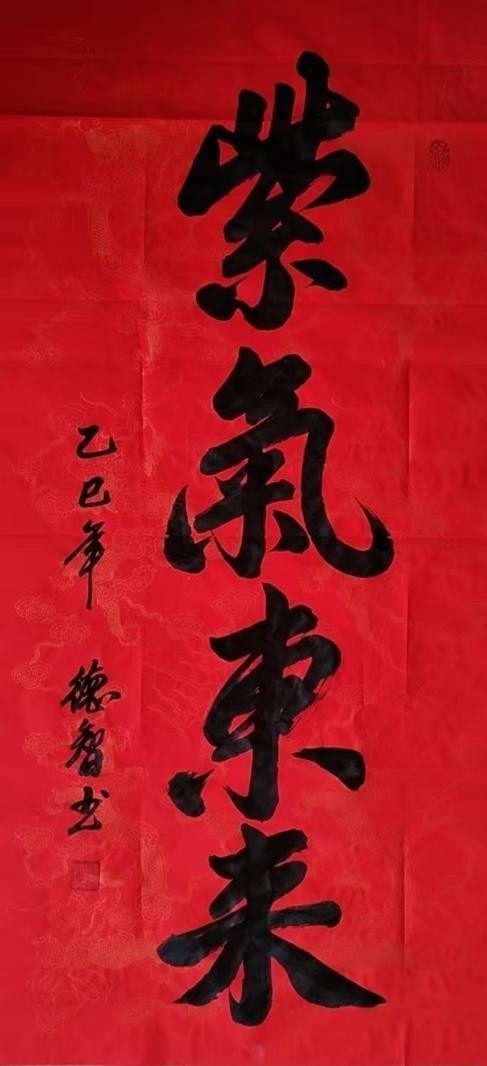 紫氣東来
乙巳年 德智书